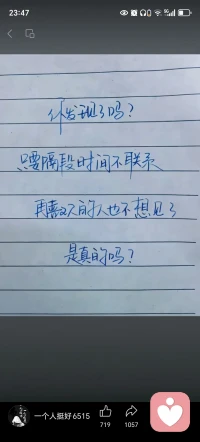 23:47
你发现了吗？
只要隔段时间不联系
再喜欢的人也不想见了
是真的吗？
一个人挺好6515
719
1057